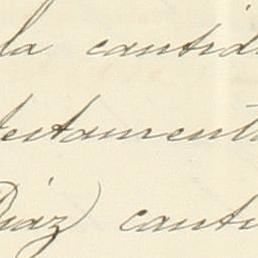 la cantid
testament
Diaz) canti